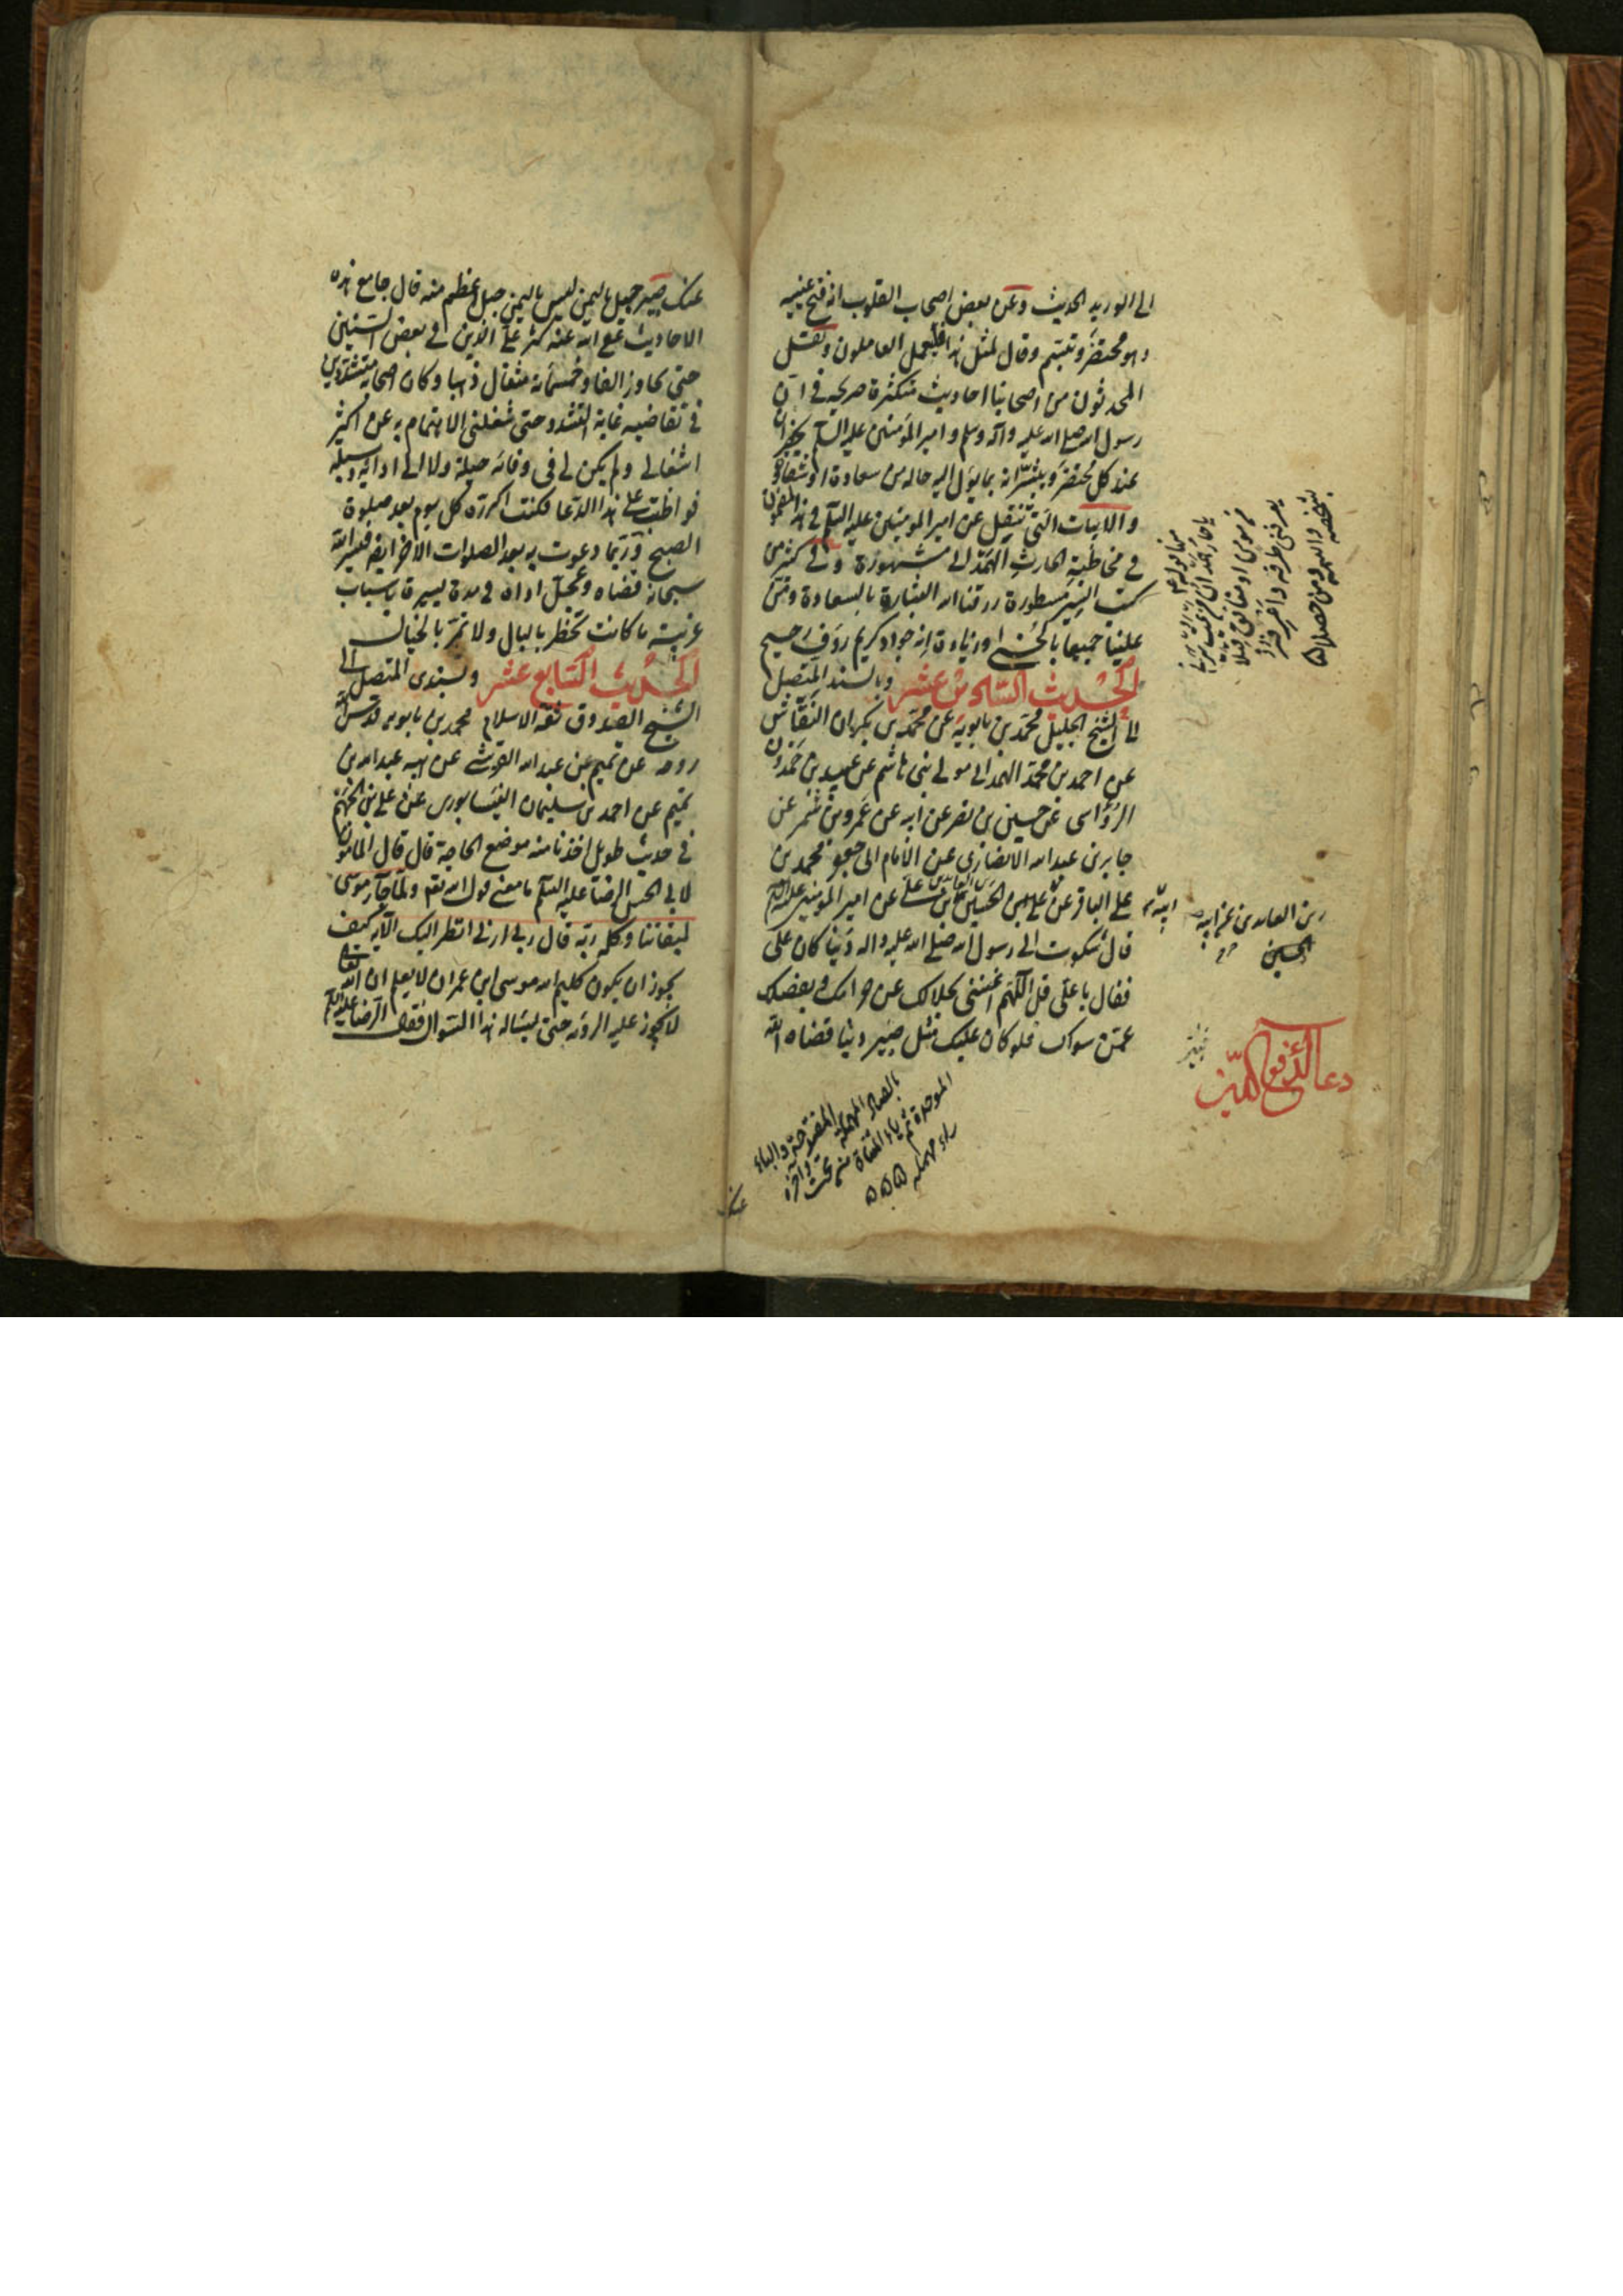 الى الوريد الحديث وعن بعض اصحاب القلوب انه فتح عينيه
وهو محتضر وتبسم وقال لمثل هذا فليعمل العاملون ونقل
المحدثون من اصحابنا احاديث متكثرة صريحة في ان
رسول الله صلى الله عليه وآله وسلم وامير المؤمنين عليه السلم يحضران
عند كل محتضر ويبشرانه بما يؤل اليه حاله من سعادة او شقاوة
والابيات التي تنقل عن امير المؤمنين عليه السلم في هذا المضمون
في مخاطبة الحارث الهمداني مشهورة وفي كثير من
كتب السير مسطورة رزقنا الله البشارة بالسعادة ومن
علينا جميعا بالحسنى وزيادة انه جواد كريم رؤف رحيم
الحديث السادس عشر وبالسند المتصل
الى الشيخ الجليل محمد بن بابويه عن محمد بن بكران النقاش
عن احمد بن محمد الهمداني مولى بني هاشم عن عبيد بن حمدون
الرؤاسي عن حسين بن نصر عن ابيه عن عمرو بن شمر عن
جابر بن عبد الله الانصاري عن الامام ابي جعفر محمد بن
علي الباقر عن علي بن الحسين عن امير المؤمنين عليه السلم
قال شكوت الى رسول الله صلى الله عليه واله دينا كان علي
فقال يا علي قل اللهم اغنني بحلالك عن حرامك وبفضلك
عمن سواك فلو كان عليك مثل صبير دينا قضاه الله
يا حار همدان من يمت يرني
من مؤمن او منافق قبلا
يعرفني طرفه واعرفه
زين العابدين عن ابيه
الحسين
دعا لدفع الدين
بالصاد المهملة المفتوحة والباء
الموحدة ثم ياء المثناة من تحت واخره
راء مهملة
عنك
عنك صبير جبل باليمن ليس باليمن جبل اعظم منه قال جامع هذه
الاحاديث عفى الله عنه كثر علي الدين في بعض السنين
حتى تجاوز الفا وخمسمائة مثقال ذهبا وكان اصحابه متشددين
في تقاضيه غاية التشدد حتى شغلني الاهتمام به عن اكثر
اشغالي ولم يكن لي في وفائه حيلة ولا الى ادائه وسيلة
فواظبت على هذا الدعا فكنت اكرره كل يوم بعد صلوة
الصبح وربما دعوت به بعد الصلوات الاخر ايضا فيسر الله
سبحانه قضاه وعجل اداه في مدة يسيرة باسباب
غريبة ما كانت تخطر بالبال ولا تمر بالخيال
الحديث السابع عشر وبسندي المتصل الى
الشيخ الصدوق ثقة الاسلام محمد بن بابويه قدس الله
روحه عن تميم بن عبد الله القرشي عن ابيه عبد الله بن
تميم عن احمد بن سليمان النيسابوري عن علي بن الجهم
في حديث طويل اخذنا منه موضع الحاجة قال قال المامون
لابي الحسن الرضا عليه السلم ما معنى قول الله تعم ولما جاء موسى
لميقاتنا وكلمه ربه قال رب ارني انظر اليك الآيه كيف
يجوز ان يكون كليم الله موسى ابن عمران لا يعلم ان الله تعالى
لا يجوز عليه الرؤيه حتى يساله هذا السؤال فقال الرضا عليه السلم